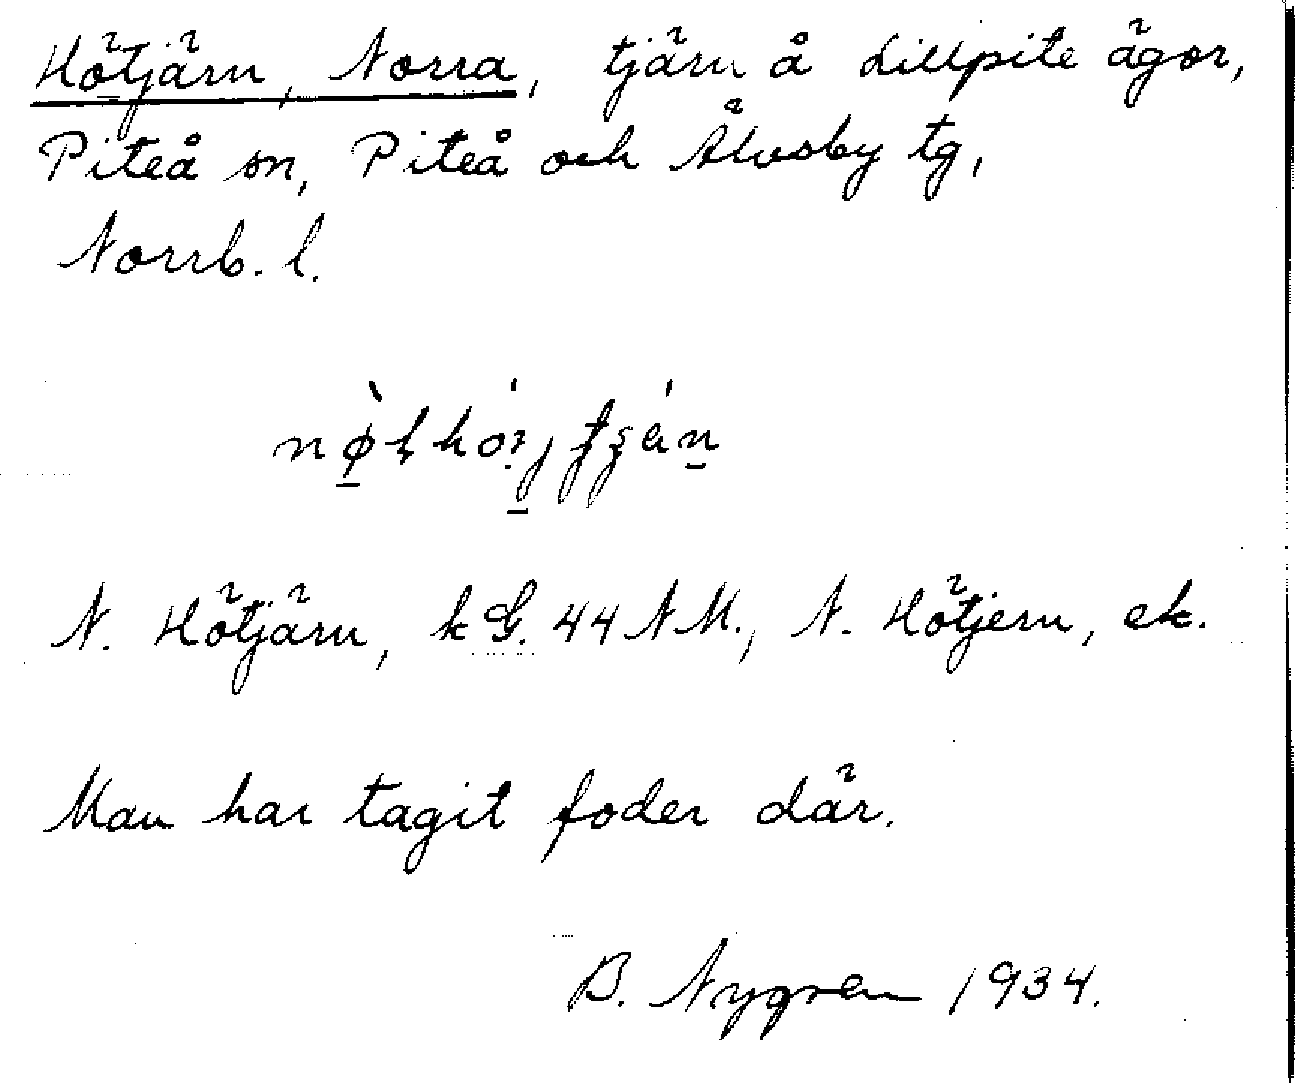 Hötjärn, Norra, tjärn å Lillpite ägor,
Piteå sn, Piteå och Älvsby tg,
Norrb. l.
N. Hötjärn, k G. 44 NM., N. Hötjern, ek.
Man har tagit foder där.
B. Nygren 1934.